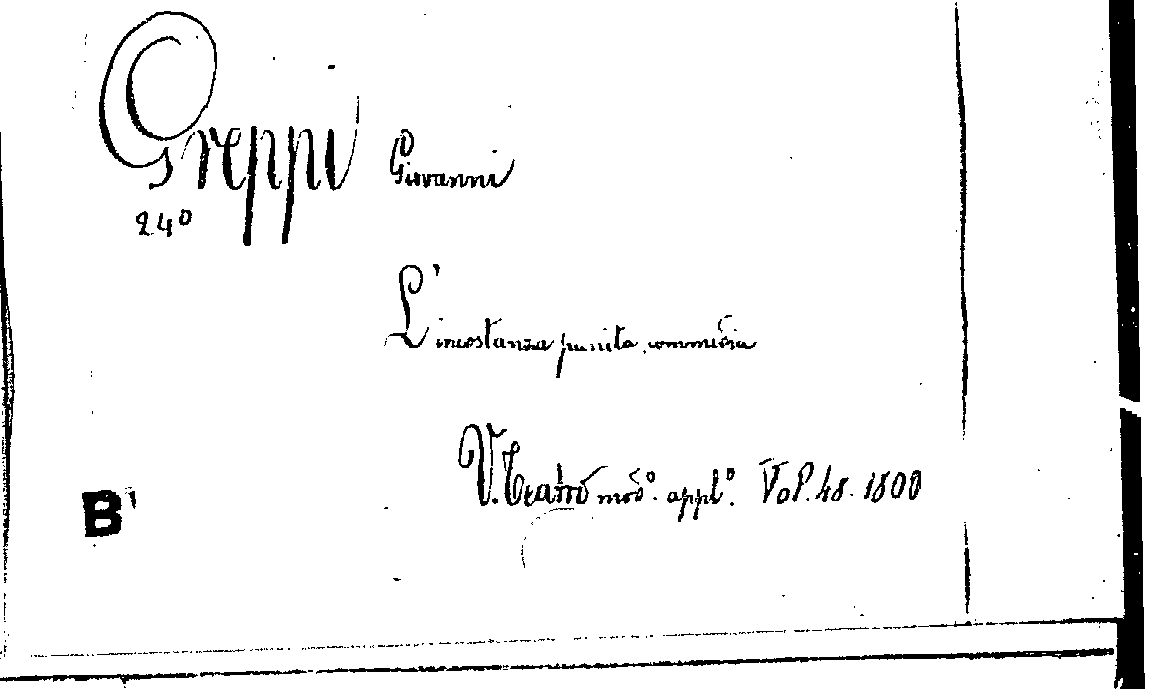 Greppi Giovanni
24º
L'incostanza punita, commedia
V. Teatro modº. applº. Vol. 48. 1800
B'